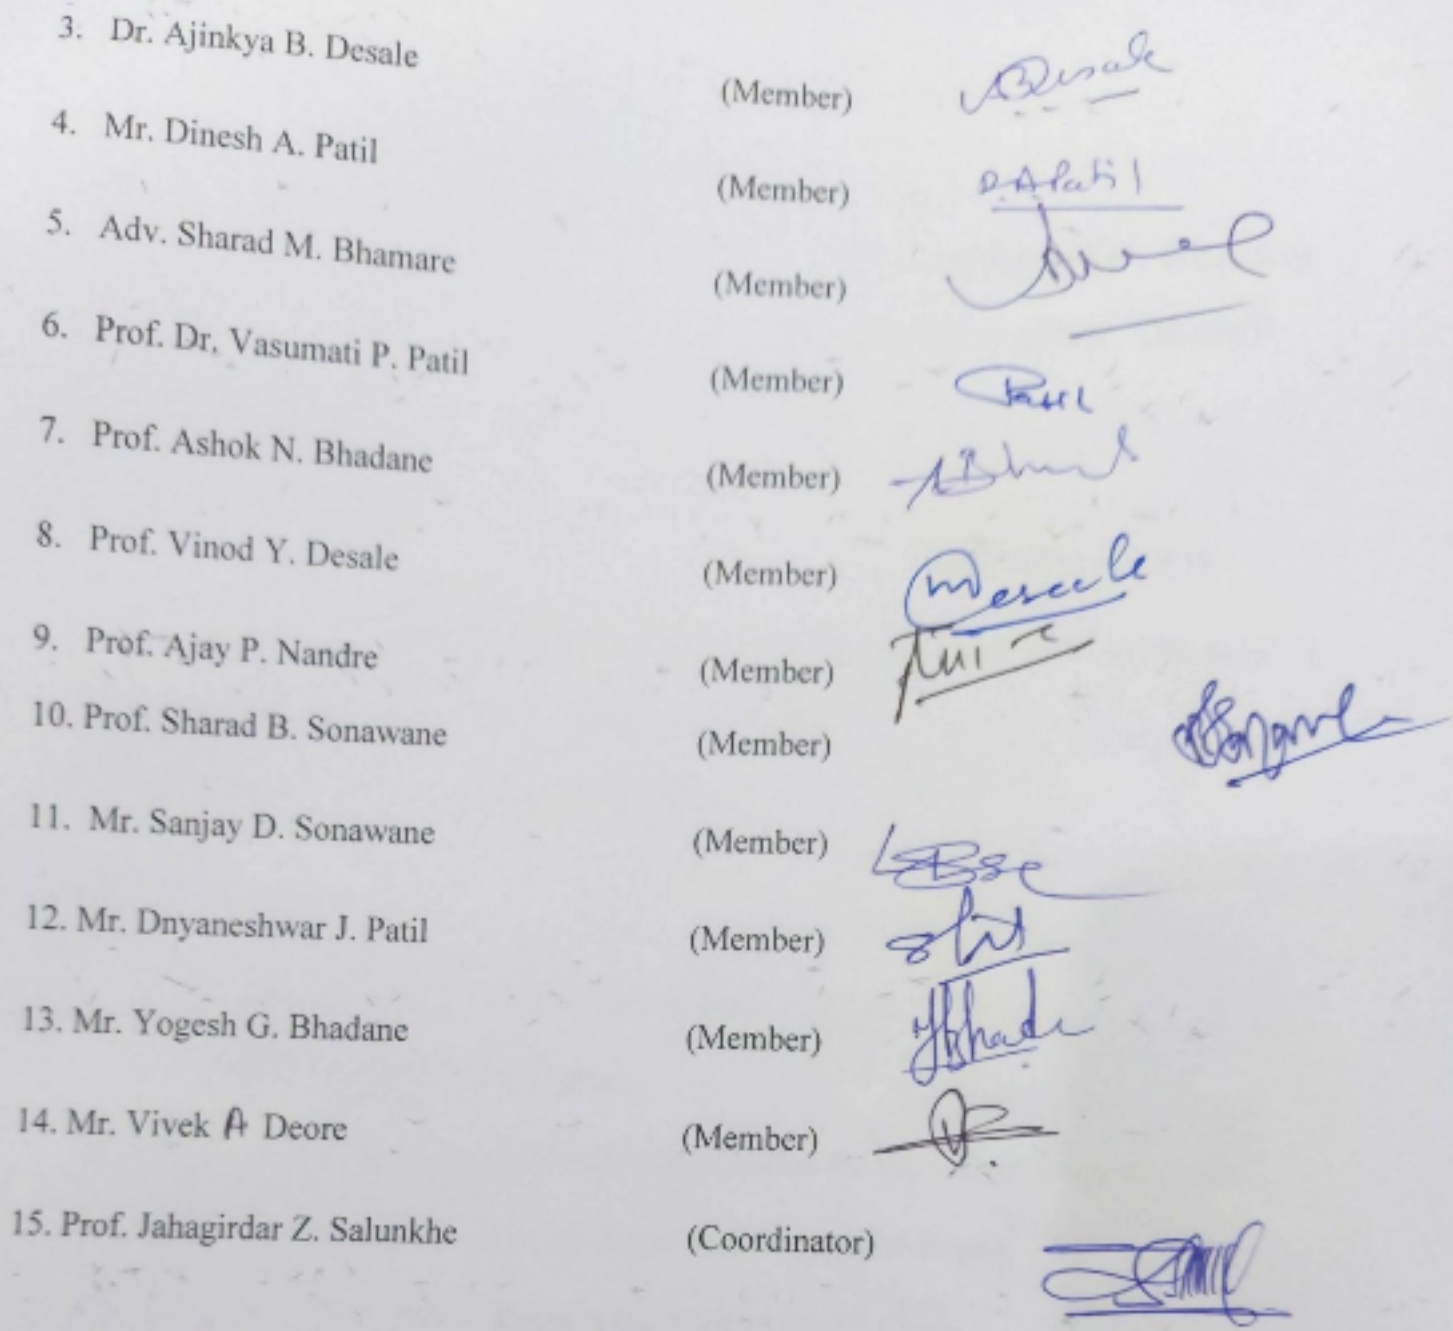 3. Dr. Ajinkya B. Desale (Member) ABDesale
4. Mr. Dinesh A. Patil (Member) D.A.Patil
5. Adv. Sharad M. Bhamare (Member)
6. Prof. Dr. Vasumati P. Patil (Member) Patil
7. Prof. Ashok N. Bhadane (Member)
8. Prof. Vinod Y. Desale (Member) Desale
9. Prof. Ajay P. Nandre (Member)
10. Prof. Sharad B. Sonawane (Member)
11. Mr. Sanjay D. Sonawane (Member)
12. Mr. Dnyaneshwar J. Patil (Member)
13. Mr. Yogesh G. Bhadane (Member)
14. Mr. Vivek A Deore (Member)
15. Prof. Jahagirdar Z. Salunkhe (Coordinator)